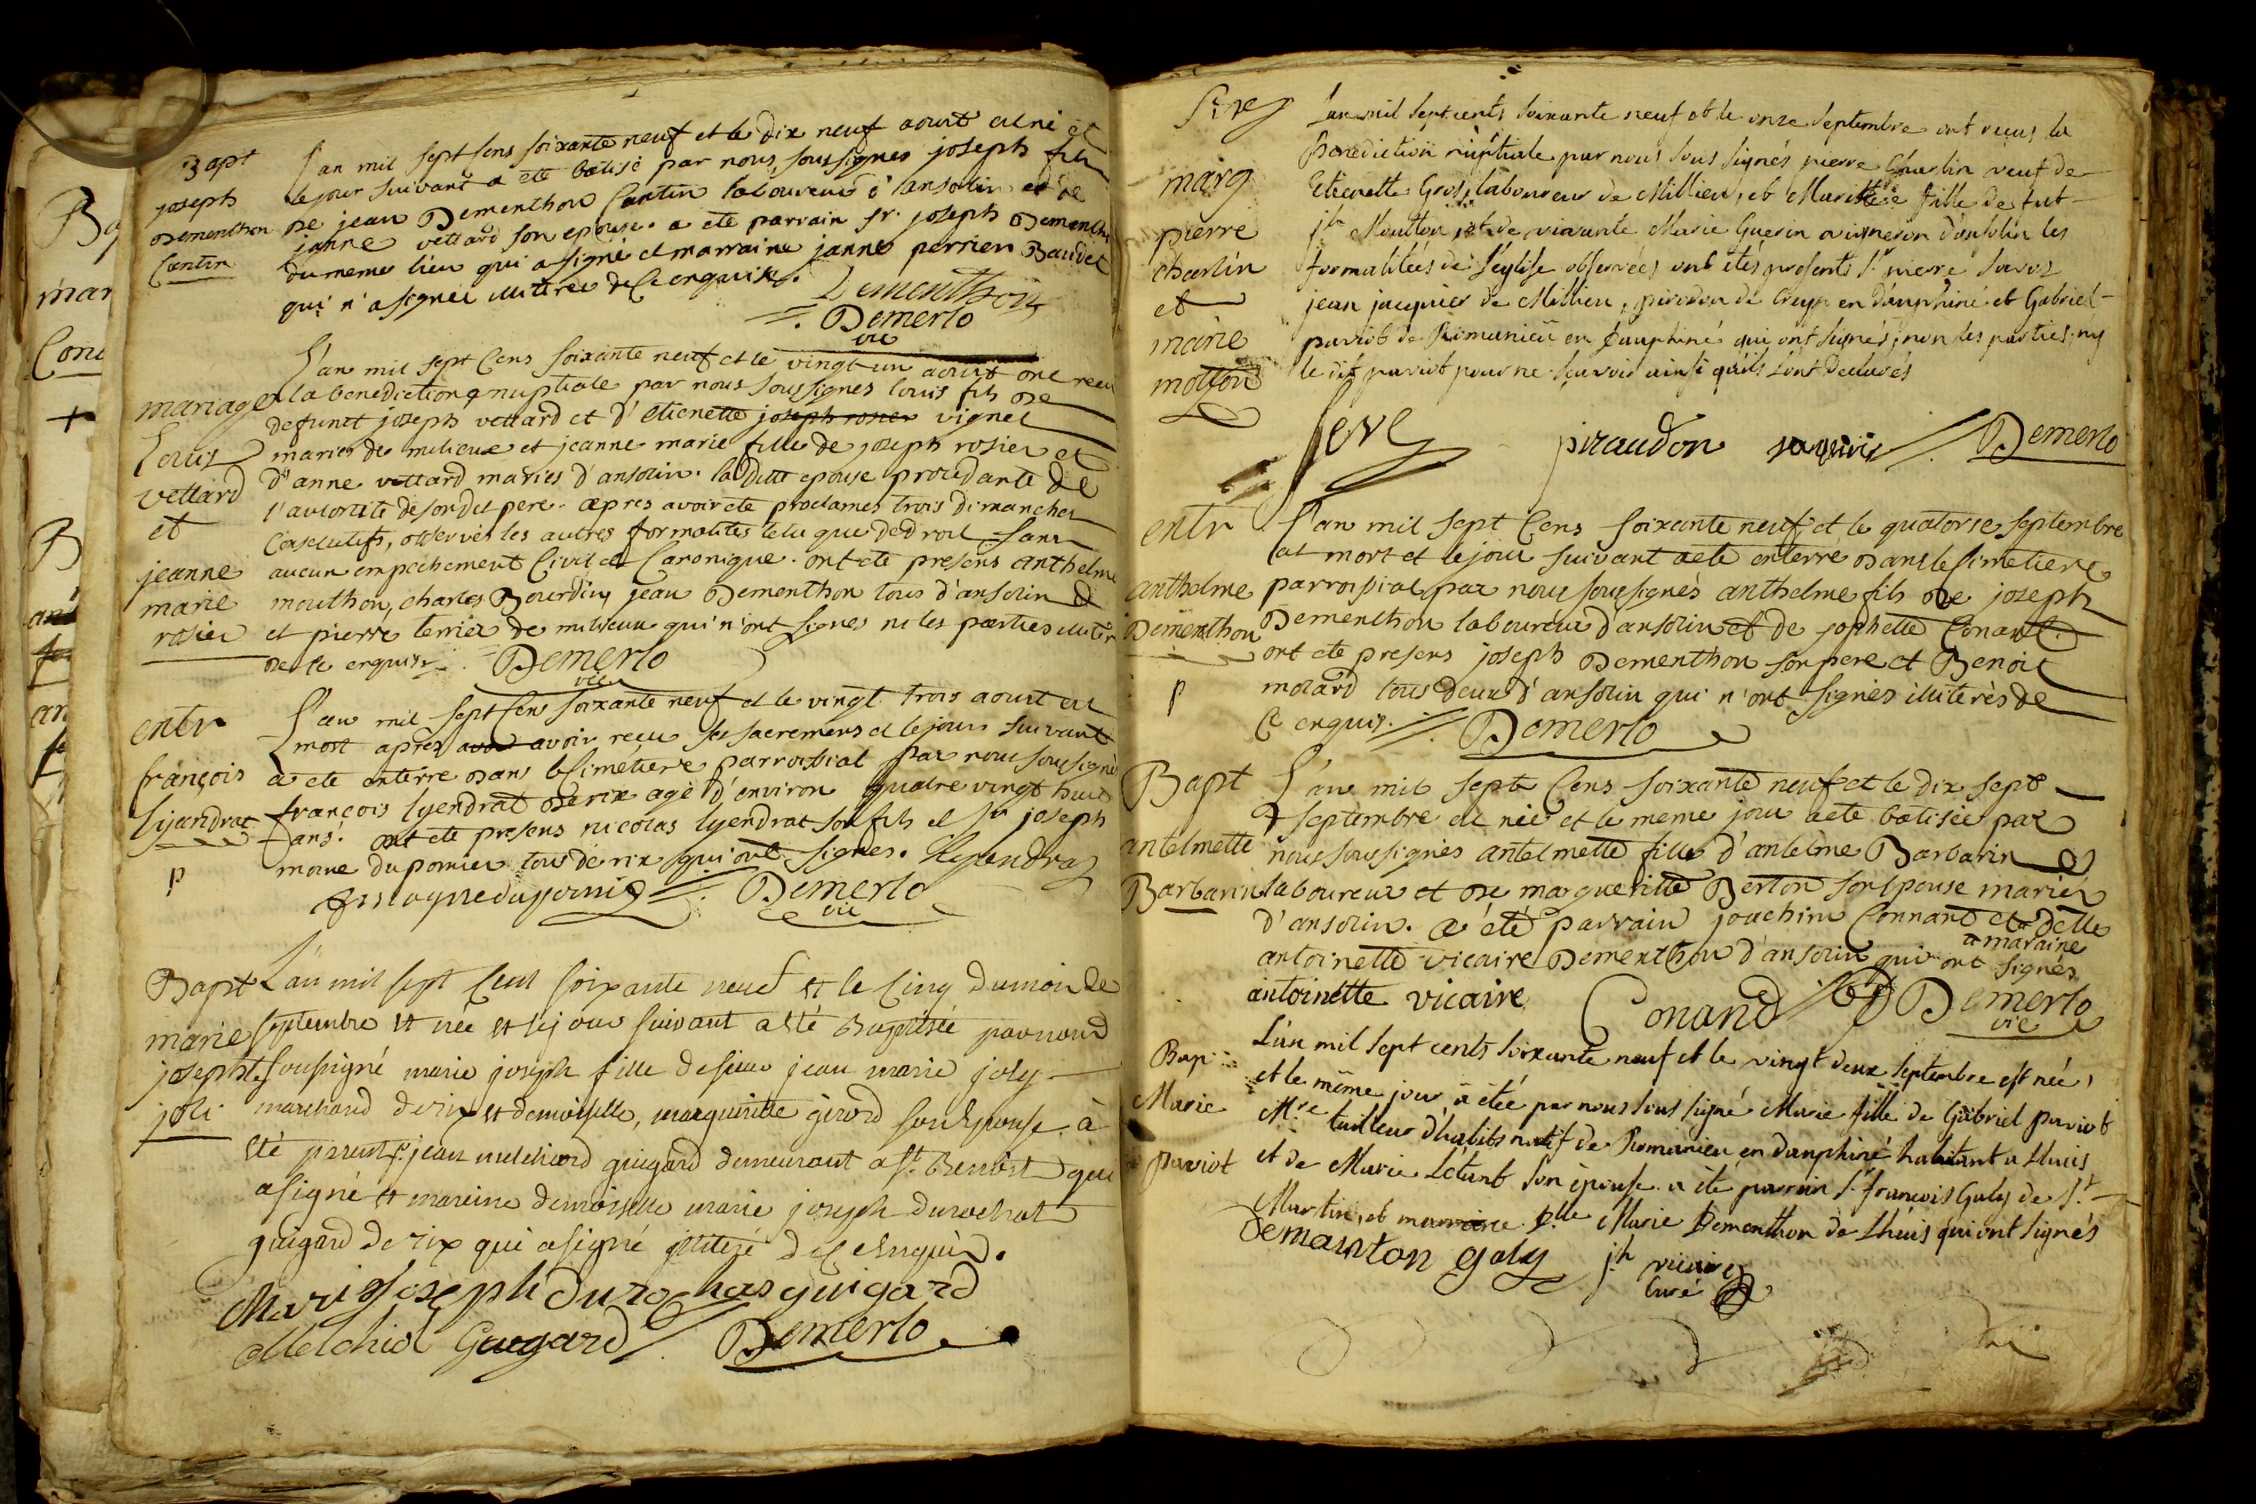 Bapt
joseph
Dementhon
Contin
L'an mil sept sens soixante neuf et le dix neuf aoust est né et
le jour suivant a eté batisé par nous soussignes joseph fils
De jean Dementhon Contin laboureur d'ansolin et de
janne vettard son epouse. a eté parrain sr. joseph Dementhon
du meme lieu qui a signé et marraine janne perrier Baudet
qui n'a signée illiterée de ce enquise. Dementhon
Demerlo
vic
mariage
Louis
vettard
et
jeanne
marie
rosier
L'an mil sept Cens soixante neuf et le vingt un aoust ont recu
la benediction nuptiale par nous soussignes louis fils de
defunct joseph vettard et d'etienette joseph rosier vignet
maries de milieux et jeanne marie fille de joseph rosier et
d'anne vettard maries d'ansolin. la ditte epouse procedante de
l'autorité de son dit pere. apres avoir ete proclames trois dimanches
Consecutifs, observés les autres formalités telu que de droit sans
aucun empechement Civil et Canonique. ont ete presens anthelme
mouthon, charles Bourdin, jean Dementhon tous d'ansolin
et pierre terrier de milieux qui n'ont signes ni les parties illiter
de ce enquis. Demerlo
vic
entr
françois
lyandrat
p
L'an mil sept Cens soixante neuf et le vingt trois aoust est
mort apres avoir avoir recu ses sacremens et le jour suivant
a ete enterre dans le simétiere parroissial par nous soussignés
françois lyendrat de rix agé d'environ quatre vingt huit
ans. ont ete presens nicolas lyendrat son fils et sr joseph
mogne du pomier tous de rix qui ont signes. lyendraz
Demerlo
vic
Bapt
marie
josephte
joli
L'an mil sept Cent soixante neuf et le Cinq du mois de
septembre est née et le jour suivant a esté Baptisée par nous
soussigné marie joseph fille de sieur jean marie joly
marchand de rix et demoiselle, margueritte girord son Epouse à
Eté parent sr. jean melchiord guigard demeurant a st. Benoist qui
a signé et mareine demoiselle marie joseph durochat
guigard de rix qui a signé de ce enquis.
Marie Joseph durochas guigard
Melchiol Guegard Demerlo
Seve
marg
pierre
charlin
et
marie
motton
L'an mil sept cents soixante neuf et le onze septembre ont reçus la
Benediction nuptiale par nous sous signés pierre Charlin veuf de
Etienette Gros, laboureur de Millieu, et Mariette fille de fut
jh Moutton et de vivante Marie Guerin a vigneron d'ansolin les
formalitées de l'eglise observées ont etés presents Sr. pierre
jean jacquier de Millieu, pirodon de Creys en dauphiné et Gabriel
paviot de Romanieu en Dauphiné qui ont signés, non les parties, ny
le dit paviot pour ne sçavoir ainsi qu'ils sont declarés
Seve piraudon Demerlo
entr
anthelme
Dementhon
p
L'an mil sept Cens soixante neuf et le quatorse septembre
est mort et le jour suivant a eté enterré dans le simetiere
parroissial par nous soussignès anthelme fils de joseph
Dementhon laboureur d'ansolin et de josphette Conand
ont eté presens joseph Dementhon son pere et Benoit
molard tous deux d'ansolin qui n'ont signès illiterès de
Ce enquis. Demerlo
Bapt
antelmette
Barbarin
L'an mil sept Cens soixante neuf et le dix sept
septembre est née et le meme jour a eté batisée par
nous soussignès antelmette fille d'antelme Barbarin
laboureur et de margueritte Berton son epouse mariés
d'ansolin. a été parrain jouchim Connand et delle
a maraine
antoinette vicaire Dementhon d'ansolin qui ont signés
antoinette vicaire Conand Demerlo
vic
Bap
Marie
paviot
L'an mil sept cents soixante neuf et le vingt deux septembre est née,
et le même jour a étée par nous sous signé Marie fille de Gabriel paviot
Mre tailleur d'habits natif de Romanieu en dauphiné habitant a Lhuis
et de Marie Létant son épouse. a été parrain Sr. francois Galy de St.
Martin, et marraine D.lle Marie Dementhon de Lhuis qui ont signés
Demanton galy jh vicaire
Curé